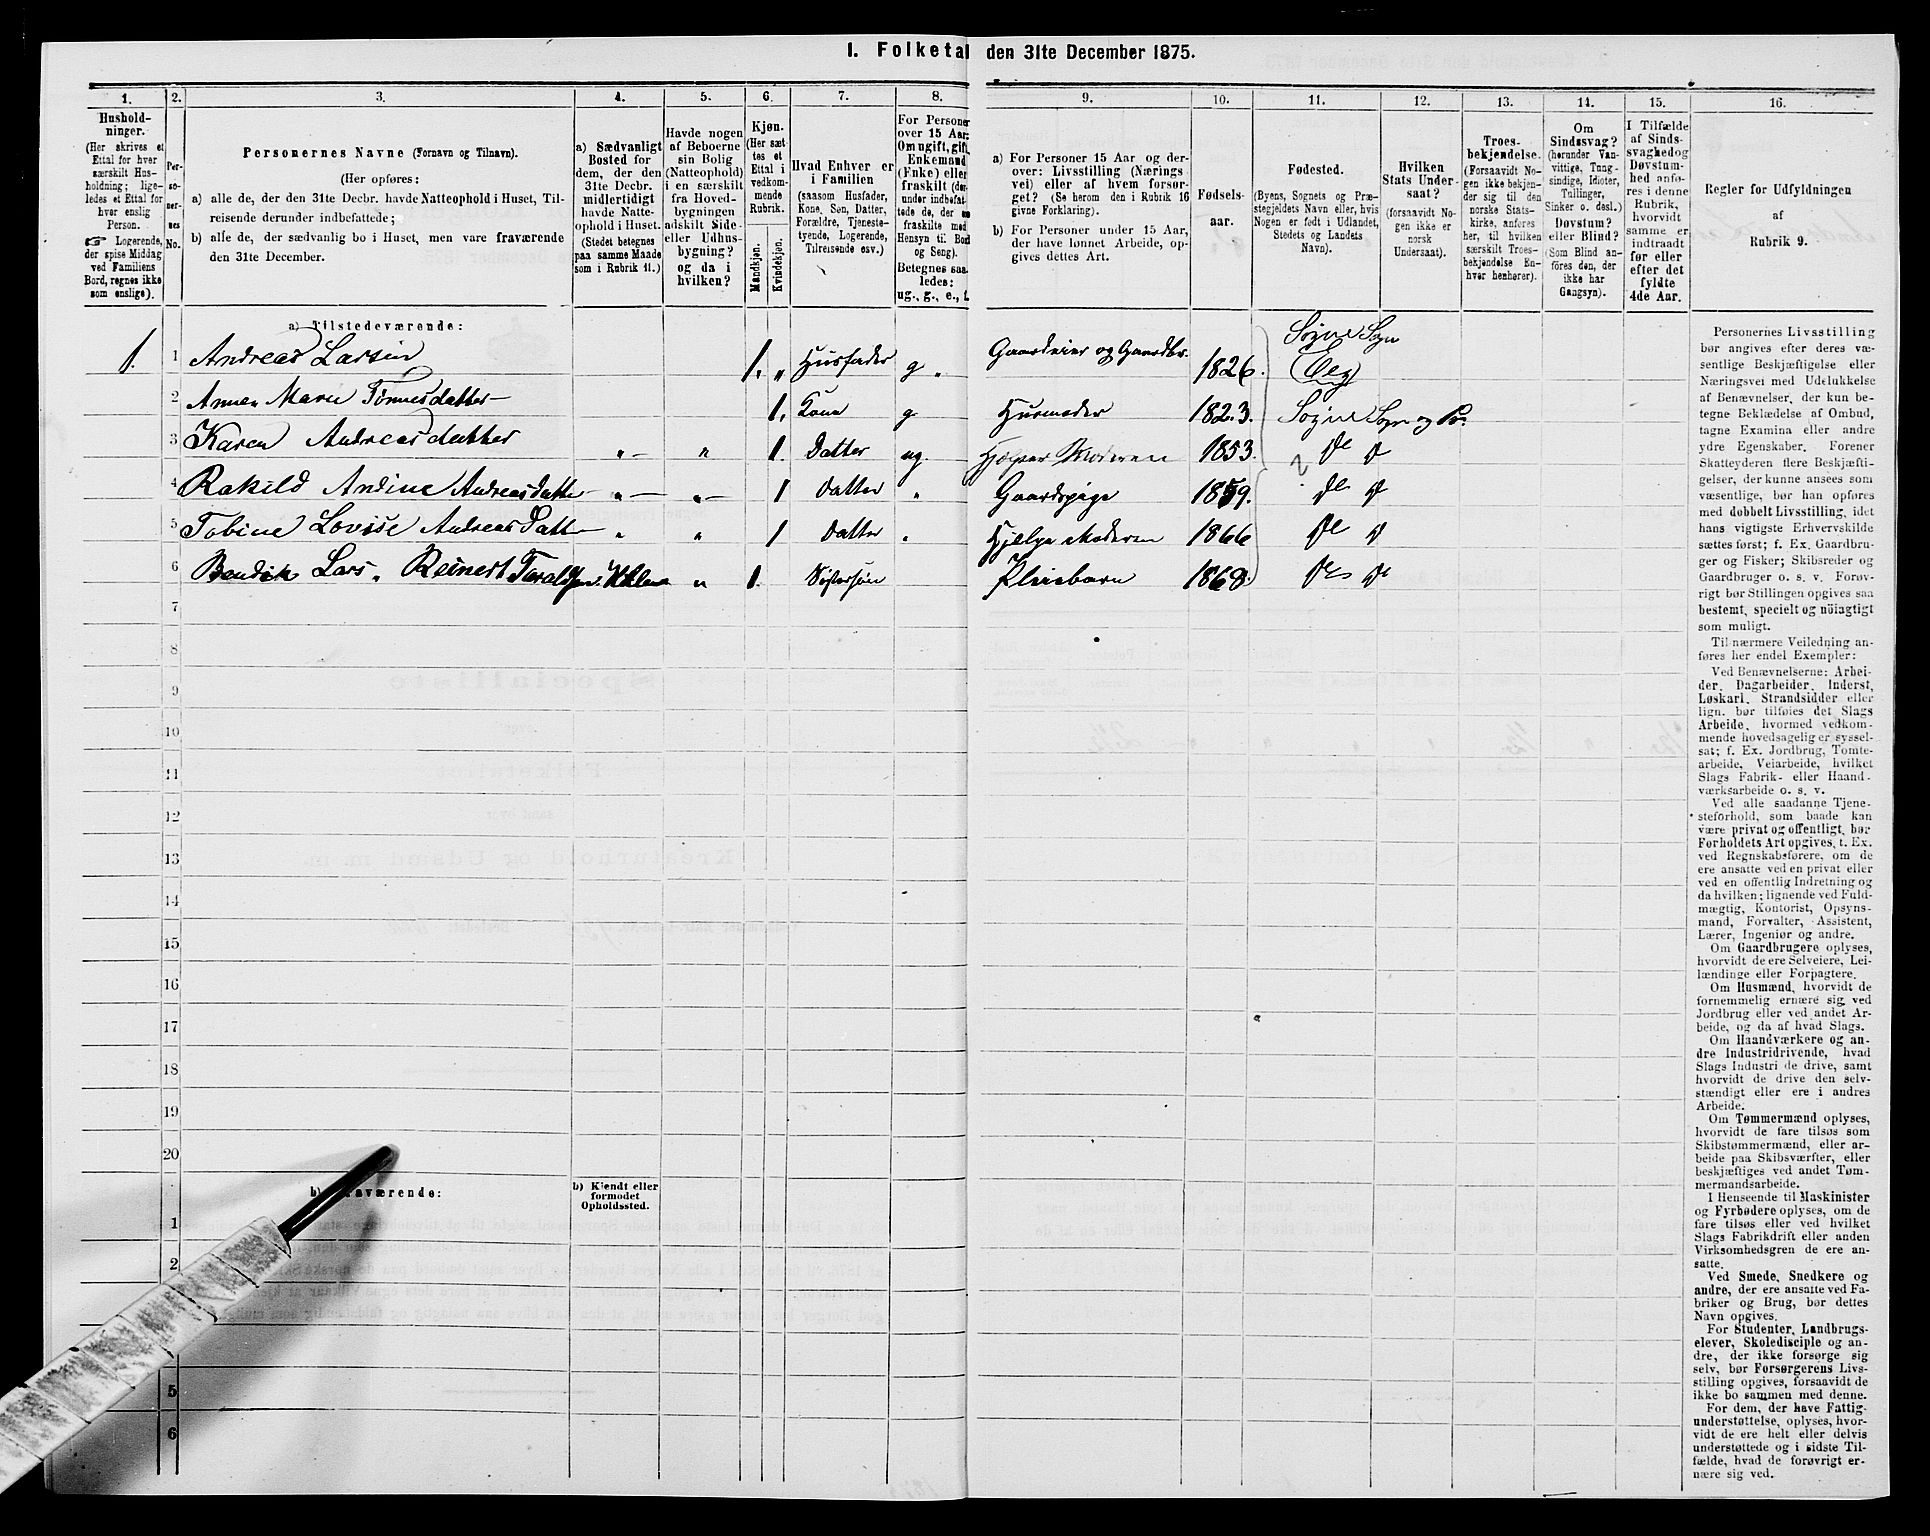 I. Folketal den 31te December 1875.
1. 2. 3. 4. 5. 6. 7. 8. 9. 10. 11. 12. 13. 14. 15. 16.
Hushold-
ninger.
(Her skrives et
Ettal for hver
særskilt Hus-
holdning; lige-
ledes et Ettal for
hver enslig
Person.
☞ Logerende,
der spise Middag
ved Familiens
Bord, regnes ikke
som enslige).
Per-
so-
ner-
nes
No.
Personernes Navne (Fornavn og Tilnavn).
(Her opføres:
a) alle de, der den 31te Decbr. havde Natteophold i Huset, Til-
reisende derunder indbefattede;
b) alle de, der sædvanlig bo i Huset, men vare fraværende
den 31te December.
a) Sædvanligt
Bosted for
dem, der den
31te Decbr.
midlertidigt
havde Natte-
ophold i Huset.
(Stedet betegnes
paa samme Maade
som i Rubrik 11.)
Havde nogen
af Beboerne
sin Bolig
(Natteophold)
i en særskilt
fra Hoved-
bygningen
adskilt Side-
eller Udhus-
bygning?
og da i
hvilken?
Kjøn.
(Her sæt-
tes et
Ettal i
vedkom-
mende
Rubrik.
Mandkjøn.
Kvindekjøn.
Hvad Enhver er
i Familien
(saasom Husfader,
Kone, Søn, Datter,
Forældre, Tjeneste-
tyende, Logerende,
Tilreisende osv.)
For Personer
over 15 Aar:
Om ugift, gift,
Enkemand
(Enke) eller
fraskilt (der-
under indbefat-
tede de, der ere
fraskilte med
Hensyn til Bord
og Seng).
Betegnes saa-
ledes:
ug., g., e., f.
a) For Personer 15 Aar og der-
over: Livsstilling (Nærings-
vei) eller af hvem forsør-
get? (Se herom den i Rubrik 16
givne Forklaring).
b) For Personer under 15 Aar,
der have lønnet Arbeide, op-
gives dettes Art.
Fødsels-
aar.
Fødested.
(Byens, Sognets og Præ-
stegjeldets Navn eller, hvis
Nogen er født i Udlandet,
Stedets og Landets
Navn).
Hvilken
Stats Under-
saat?
(forsaavidt No-
gen ikke er
norsk
Undersaat).
Troes-
bekjendelse.
(Forsaavidt No-
gen ikke bekjen-
der sig til den
norske Stats-
kirke, anføres
her, til hvilken
særskilt Troes-
bekjendelse En-
hver henhører).
Om
Sindssvag?
(herunder Van-
vittige, Tung-
sindige, Idioter,
Tullinger,
Sinker o. desl.)
Døvstum?
eller Blind?
(Som Blind an-
føres den, der
ikke har
Gangsyn).
I Tilfælde
af Sinds-
svaghed og
Døvstum-
hed anfø-
res i denne
Rubrik,
hvorvidt
samme er
indtraadt
før eller
efter det
fyldte
4de Aar.
Regler for Udfyldningen
af
Rubrik 9.
a) Tilstedeværende:
1. 1 Andreas Larsen 1. „ Husfader g „ Gaardeier og Gaardbr. 1826. Sogne Sogn
Eeg
2 Annen Marie Tønnesdatter 1. Kone g Husmoder 1823. Sogne Sogn og Pr.
3 Karen Andreasdatter „ „ 1. Datter ug. Hjelper Moderen 1853. D D
4 Rakild Andine Andreasdatte „ „ 1 Datter „ Gaardspige 1859. ? D D
5 Tobine Lovise Andreas Datt „ „ 1 Datter „ Hjelper Moderen 1866 D D
6 Bendik Lars. Reinert Taraldsen. „ 1. Søstersøn Pleiebarn 1868. D D
7
8
9
10
11
12
13
14
15
16
17
18
19
20
b) Fraværende: b) Kjendt eller
formodet
Opholdssted.
1
2
5
6
Personernes Livsstilling
bør angives efter deres væ-
sentlige Beskjæftigelse eller
Næringsvei med Udelukkelse
af Benævnelser, der kun be-
tegne Beklædelse af Ombud,
tagne Examina eller andre
ydre Egenskaber. Forener
Skatteyderen flere Beskjæfti-
gelser, der kunne ansees som
væsentlige, bør han opføres
med dobbelt Livsstilling, idet
hans vigtigste Erhvervskilde
sættes først; f. Ex. Gaardbru-
ger og Fisker; Skibsreder og
Gaardbruger o. s. v. Forøv-
rigt bør Stillingen opgives saa
bestemt, specielt og nöiagtigt
som muligt.
Til nærmere Veiledning an-
føres her endel Exempler:
Ved Benævnelserne: Arbei-
der, Dagarbeider, Inderst,
Løskarl, Strandsidder eller
lign. bør tilføies det Slags
Arbeide, hvormed vedkom-
mende hovedsagelig er syssel-
sat; f. Ex. Jordbrug, Tomte-
arbeide, Veiarbeide, hvilket
Slags Fabrik- eller Haand-
værksarbeide o. s. v.
Ved alle saadanne Tjene-
steforhold, som baade kan
være privat og offentligt, bør
Forholdets Art opgives, t. Ex.
ved Regnskabsførere, om de
ere ansatte ved en privat eller
ved en offentlig Indretning og
da hvilken; lignende ved Fuld-
mægtig, Kontorist, Opsyns-
mand, Forvalter, Assistent,
Lærer, Ingeniør og andre.
Om Gaardbrugere oplyses,
hvorvidt de ere Selveiere, Lei-
lændinge eller Forpagtere.
Om Husmænd, hvorvidt de
fornemmelig ernære sig ved
Jordbrug eller ved andet Ar-
beide, og da af hvad Slags.
Om Haandværkere og an-
dre Industridrivende, hvad
Slags Industri de drive, samt
hvorvidt de drive den selv-
stændigt eller ere i andres
Arbeide.
Om Tømmermænd oplyses,
hvorvidt de fare tilsøs som
Skibstømmermænd, eller ar-
beide paa Skibsværfter, eller
beskjæftiges ved andet Tøm-
mermandsarbeide.
I Henseende til Maskinister
og Fyrbødere oplyses, om de
fare tilsøs eller ved hvilket
Slags Fabrikdrift eller anden
Virksomhedsgren de ere an-
satte.
Ved Smede, Snedkere og
andre, der ere ansatte ved Fa-
briker og Brug, bør dettes
Navn opgives.
For Studenter, Landbrugs-
elever, Skoledisciple og an-
dre, der ikke forsørge sig
selv, bør Forsørgerens Livs-
stilling opgives, forsaavidt de
ikke bo sammen med denne.
For dem, der have Fattig-
understøttelse, oplyses, hvor-
vidt de ere helt eller delvis
understøttede og i sidste Til-
fælde, hvad de forøvrigt er-
nære sig ved.